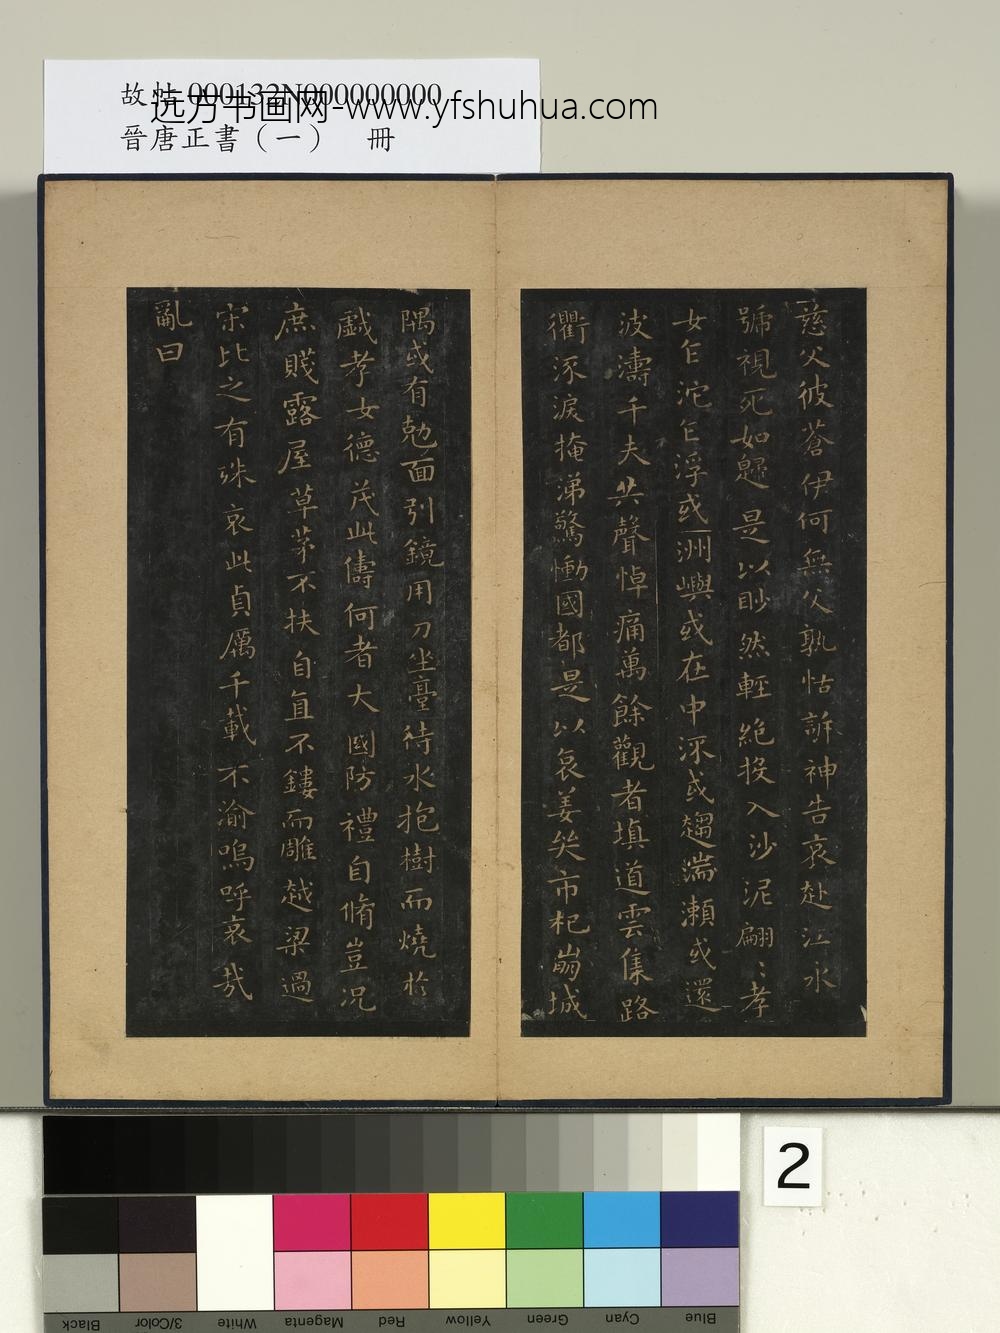 故帖 000132N000000000
远方书画网-www.yfshuhua.com
晉唐正書（一） 冊
慈父彼蒼伊何無父孰怙訴神告哀赴江永
號視死如歸是以眇然輕絕投入沙泥翩〻孝
女乍沱乍浮或洲嶼或在中流或趨湍瀨或還
波濤千夫共聲悼痛萬餘觀者填道雲集路
衢流淚掩涕驚慟國都是以哀姜哭市杞崩城
隅或有勊面引鏡用刀坐臺待水抱樹而燒於
戲孝女德茂此儔何者大國防禮自脩豈況
庶賤露屋草茅不扶自直不鏤而雕越梁過
宋比之有殊哀此貞厲千載不渝嗚呼哀哉
亂曰
2
Black
3/Color
White
Magenta
Red
Yellow
Green
Cyan
Blue